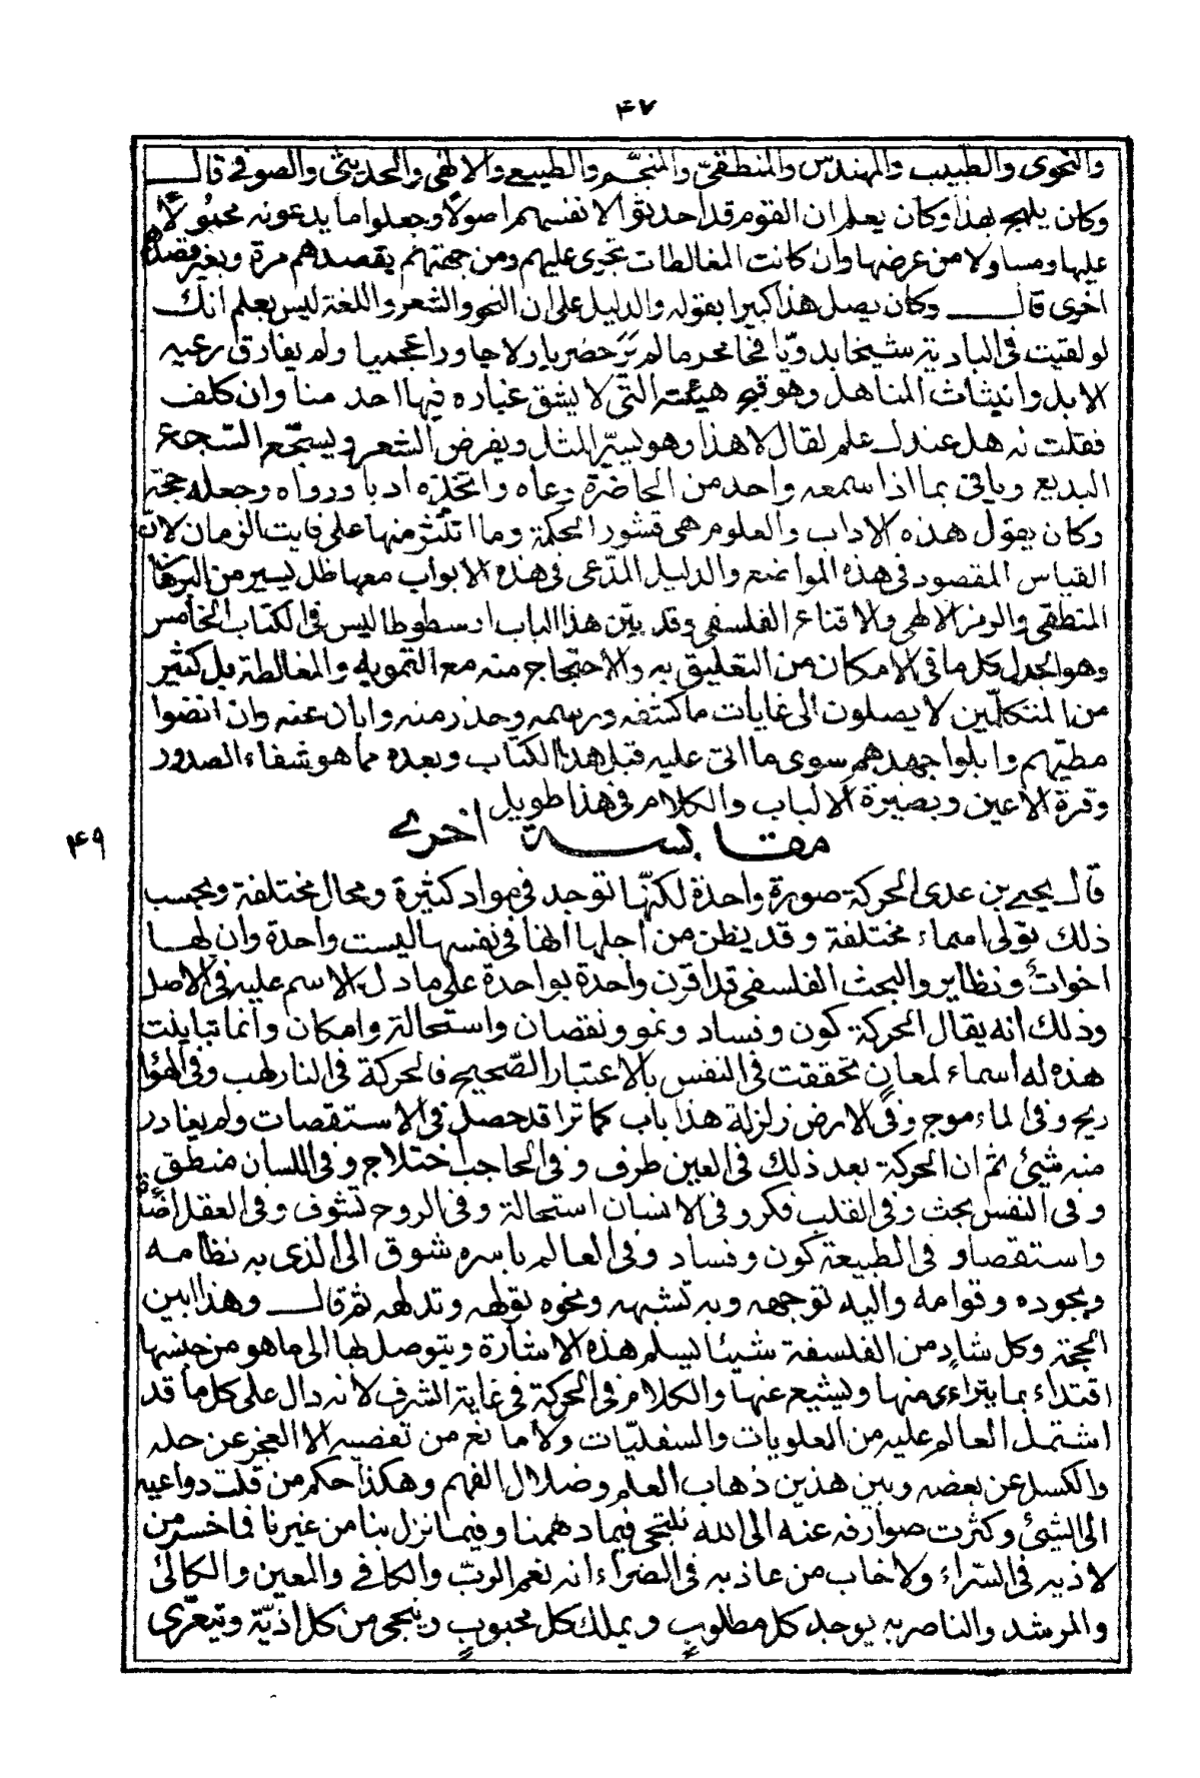 ٤٧
والنحوى والطبيب والمهندس والمنطقىّ والمنجّم والطبيعى والالهى والحديثى والصوفى قال
وكان يلهج بهذا وكان يعلم ان القوم قد احدثوا لانفسهم اصولاً وجعلوا ما يدعونه محمولاً
عليها ومساولا من عرضها وان كانت المغالطات تجرى عليهم ومن جهتهم بقصدهم مرة وبغير قصدهم
اخرى قال وكان يصل هذا كبيرا بقوله والدليل على ان النحو والشعر واللغة ليس بعلم انّك
لو لقيت فى البادية شيخا بدويّا قحا محرما لم ير حضريا ولا جاور اعجميا ولم يفارق رعيه
الابل وانيثاث المناهل وهو قبح هيئته التى لا يشق غباره فيها احد منا وان كلف
فقلت له هل عندك علم لقال لا هذا وهو يسيّر المثل ويقرض الشعر ويسجّع السّجع
البديع وياتى بما اذا سمعه واحد من الحاضرة وعاه واتخذه ادبا ورواه وجعله حجة
وكان يقول هذه الاداب والعلوم هى قشور الحكمة وما انتثر منها على فايت الزمان لانّ
القياس المقصود فى هذه المواضع والدليل المدّعى فى هذه الابواب معها ظل يسير من البرهان
المنطقى والرمز الالهى والاقناع الفلسفى وقد بيّن هذا الباب ارسطوطاليس فى الكتاب الخامس
وهو الجدل كل ما فى الامكان من التعليق به والاحتجاج منه مع التمويه والمغالطة بل كثير
من المتكلّمين لا يصلون الى غايات ما كشفه ورسمه وحذر منه وابان عنه وان انضوا
مطيّهم وابلوا جهدهم سوى ما اتى عليه قبل هذا الكتاب وبعده مما هو شفاء الصدور
وقرة الاعين وبصيرة الالباب والكلام فى هذا طويل
مقابسة اخرى
٤٩
قال يحيى بن عدى الحركة صورة واحدة لكنّها توجد فى مواد كثيرة ومحال مختلفة وبحسب
ذلك تولى اسماء مختلفة وقد يظن من اجلها انها فى نفسها ليست واحدة وان لها
اخوات ونظاير والبحث الفلسفى قد اقرن واحدة بواحدة على ما دل الاسم عليه فى الاصل
وذلك انه يقال الحركة كون وفساد ونمو ونقصان واستحالة وامكان وانما تباينت
هذه له اسماء لمعانٍ تحققت فى النفس بالاعتبار الصّحيح فالحركة فى النار لهب وفى الهواء
ريح وفى الماء موج وفى الارض زلزلة هذا باب كما ترا قد حصل فى الاستقصات ولم يغادر
منه شيئ ثم ان الحركة بعد ذلك فى العين طرف وفى الحاجب اختلاج وفى اللسان منطق
وفى النفس بحث وفى القلب فكر وفى الانسان استحالة وفى الروح تشوف وفى العقل اضاءة
واستقصاو فى الطبيعة كون وفساد وفى العالم باسره شوق الى الذى به نظامه
وبجوده وقوامه واليه توجهه وبه تشبهه ونحوه تولهه وتدلهه ثم قال وهذا ابين
الحجة وكل شادٍ من الفلسفة شيئا يسلم هذه الاشارة ويتوصل لها الى ما هو من جنسها
اقتداء بما يتراءى منها وليشيع عنها والكلام فى الحركة فى غاية الشرف لانه دال على كل ما قد
اشتمل العالم عليه من العلويات والسفليّات ولا مانع من تقصيه الا العجز عن حله
والكسل عن بعضه وبين هذين ذهاب العلم وضلال الفهم وهكذا حكم من قلت دواعيه
الى الشيئ وكثرت صوارفه عنه الى الله نلتجى فيما دهمنا وفيما نزل بنا من غيرنا فما خسر من
لاذ به فى السّراء ولا خاب من عاذ به فى الضراء انه نعم الربّ والكافى والمعين والكالئ
والمرشد والناصر به يوجد كل مطلوبٍ ويملك كل محبوبٍ وينجى من كل اذيّة ويتعرّى